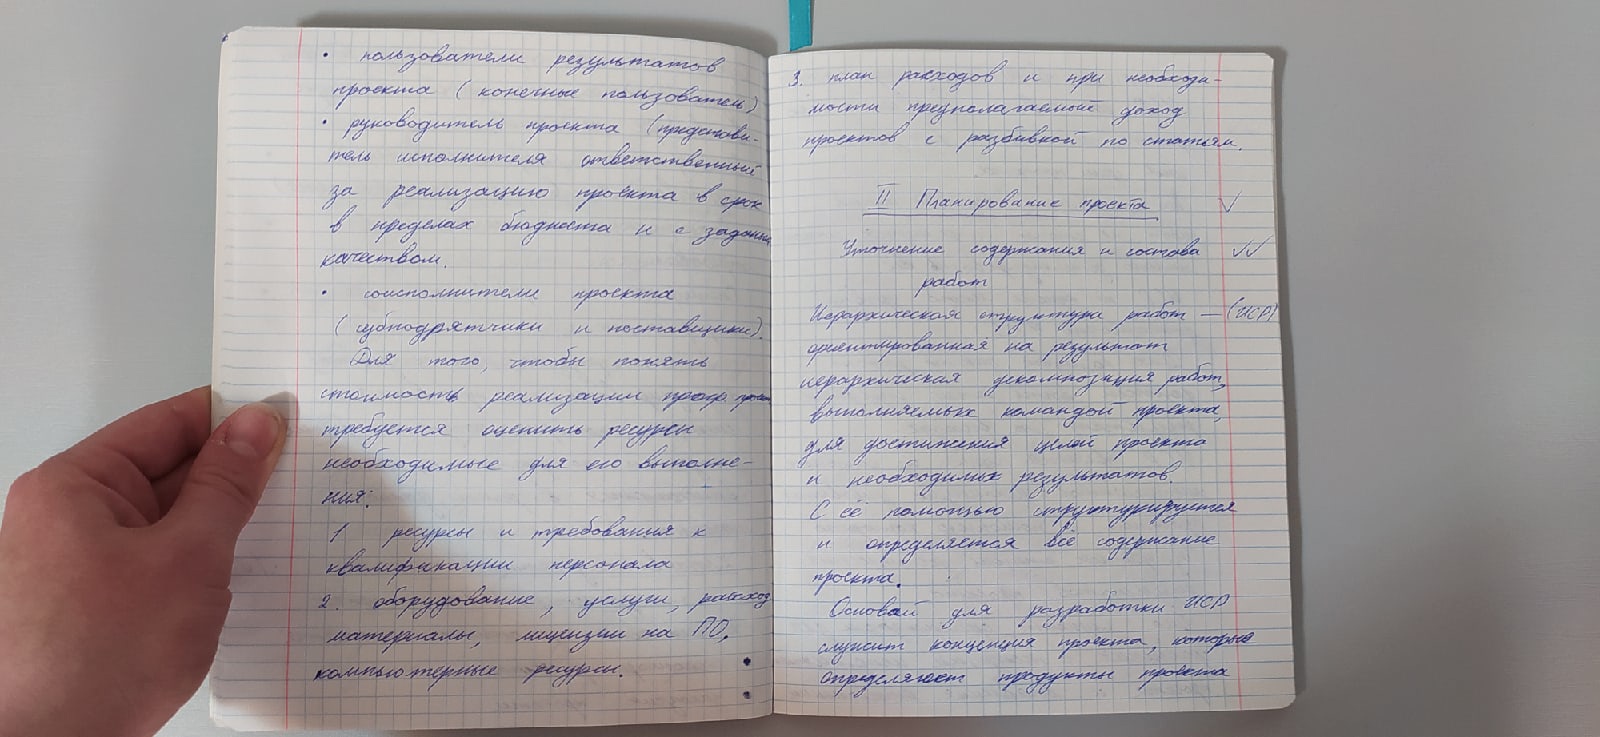 • пользователи результатов
проекта (конечные пользователь)
• руководитель проекта (представи-
тель исполнителя ответственный
за реализацию проекта в срок
в пределах бюджета и с задан
качеством.
• соисполнители проекта
(субподрятчики и поставщики).
Для того, чтобы понять
стоимость реализации
требуется оценить ресурсы
необходимые для его выполне-
ния:
1 ресурсы и требования к
квалификации персонала
2. оборудование, услуги, расход
материалы, лицензии на ПО,
компьютерные ресурсы.
3. план расходов и при необходи-
мости предполагаемые доход
проектов с разбивкой по статьям.
II Планирование проекта
Уточнение содержания и состава
работ
Иерархическая структура работ — (ИСР)
ориентированная на результат
иерархическая декомпозиция работ,
выполняемых командой проекта,
для достижения целей проекта
и необходимых результатов.
С её помощью структурируется
и определяется всё содержание
проекта.
Основой для разработки ИСР
служит концепция проекта, которые
определяют продукты проекта